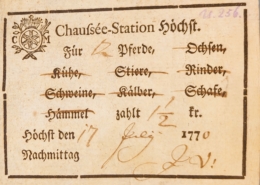 21.256.
Chausſée-Station Höchſt.
Für 12 Pferde, Ochſen,
Kühe, Stiere, Rinder,
Schweine, Kälber, Schafe,
Hämmel zahlt 1 1/2 kr.
Höchſt den 17 July 1770
Nachmittag